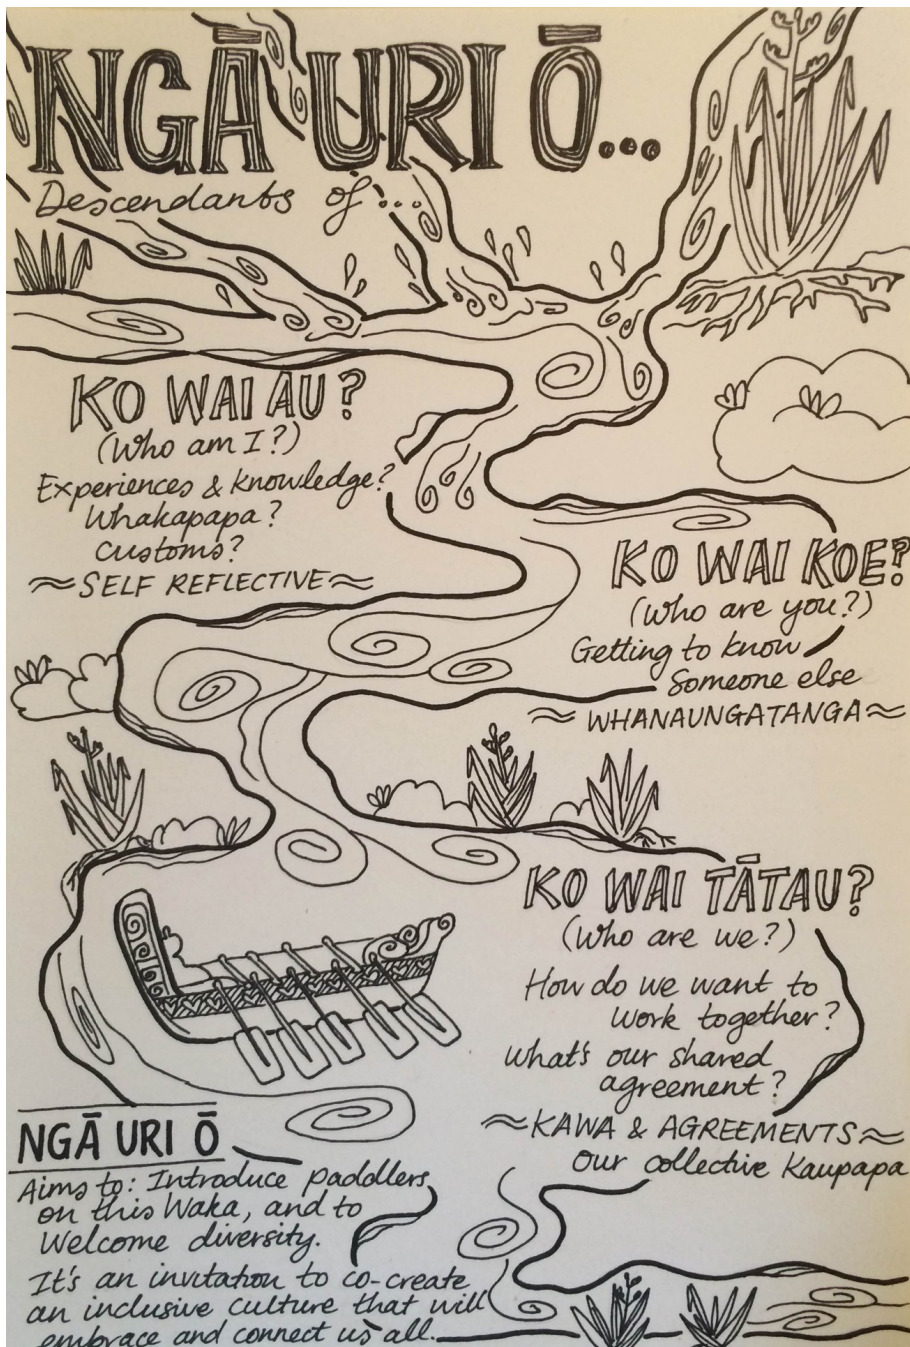 NGĀ URI Ō...
Descendants of...
KO WAI AU?
(Who am I?)
Experiences & knowledge?
Whakapapa?
Customs?
≈SELF REFLECTIVE≈
KO WAI KOE?
(Who are you?)
Getting to know
Someone else
≈WHANAUNGATANGA≈
KO WAI TĀTAU?
(Who are we?)
How do we want to
work together?
What's our shared
agreement?
≈KAWA & AGREEMENTS≈
Our collective Kaupapa
NGĀ URI Ō
Aims to: Introduce paddlers
on this Waka, and to
Welcome diversity.
It's an invitation to co-create
an inclusive culture that will
embrace and connect us all.